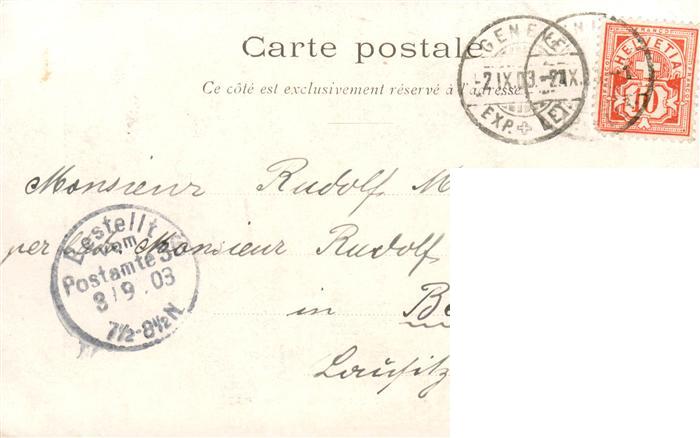 Carte postale
Ce côté est exclusivement réservé à l'adresse
GENÈVE
-2.IX.03.-
EXP. + LET.
FRANCO
HELVETIA
10
Monsieur Rudolf M
per Monsieur Rudolf
in Be
Lausitz
Bestellt
vom
Postamte 3
3/9.03
7½-8½N